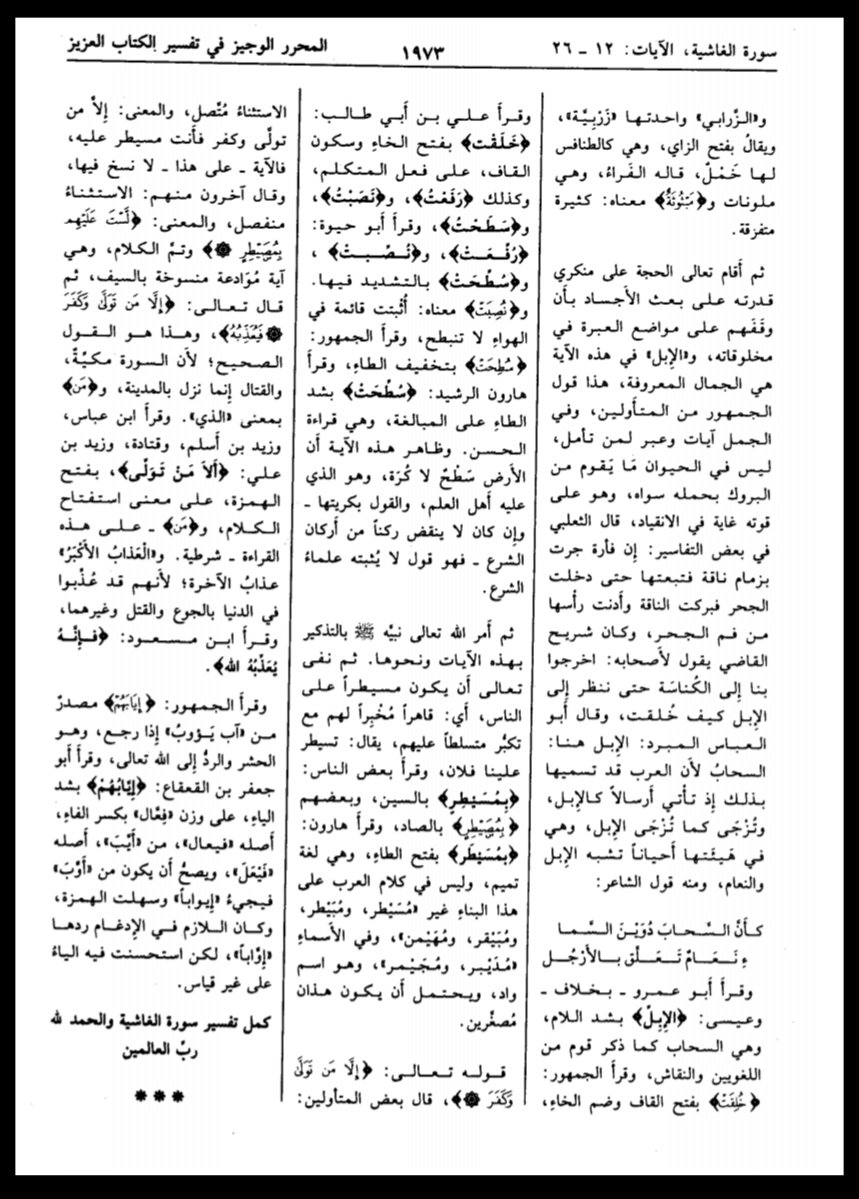 سورة الغاشية، الآيات: ١٢ ـ ٢٦
١٩٧٣
المحرر الوجيز في تفسير الكتاب العزيز
و«الـزَّرابي» واحدتـهـا «زَرْبِيَّـة»،
ويقالُ بفتح الزاي، وهي كالطنافس
لـهـا خَـمْـلٌ، قـالـه الـفَـراءُ، وهـي
ملونات و﴿مَبْثُوثَةٌ﴾ معناه: كثيرة
متفرّقة.
ثم أَقام تعالى الحجة على منكري
قدرته على بعث الأجساد بأَن
وقَفَهم على مواضع العبرة في
مخلوقاته، و«الإبل» في هذه الآية
هي الجمال المعروفة، هذا قول
الجمهور من المتأولين، وفي
الجمل آيات وعبر لمن تأمل،
ليس في الحيوان مَا يَقوم من
البروك بحمله سواه، وهو على
قوته غاية في الانقياد، قال الثعلبي
في بعض التفاسير: إن فأرة جرت
بزمام ناقة فتبعتها حتى دخلت
الجحر فبركت الناقة وأَدنت رأْسها
من فم الجحر، وكان شريح
القاضي يقول لأَصحابه: اخرجوا
بنا إلى الكُناسَة حتى ننظر إلى
الإبل كيف خُلقت، وقال أَبو
العباس المبرد: الإبل هنا:
السحابُ لأن العرب قد تسميها
بذلك إذ تأْتي أَرسالاً كالإبل،
وتُزْجَى كما تُزْجَى الإبل، وهي
في هَيئَتها أَحياناً تشبه الإبل
والنعام، ومنه قول الشاعر:
كـأَنَّ الـسَّـحـابَ دُوَيْـنَ الـسَّـمـا
ءِ نَـعَـامٌ تَـعَـلَّـق بـالأَرْجُـلِ
وقرأَ أَبو عمرو ـ بخلاف ـ
وعيسى: ﴿الإبِلِّ﴾ بشد اللام،
وهي السحاب كما ذكر قوم من
اللغويين والنقاش، وقرأَ الجمهور:
﴿خُلِقَتْ﴾ بفتح القاف وضم الخاءِ،
وقرأَ علي بن أَبي طالب:
﴿خَلَقْت﴾ بفتح الخاءِ وسكون
القاف، على فعل المتكلم،
وكذلك ﴿رَفَعْتُ﴾، و﴿نَصَبْتُ﴾،
و﴿سَطَحْتُ﴾، وقرأَ أَبو حيوة:
﴿رُفِّعَتْ﴾، و﴿نُصِّبَتْ﴾،
و﴿سُطِّحَتْ﴾ بالتشديد فيها.
و﴿نُصِبَتْ﴾ معناه: أُثبتت قائمة في
الهواءِ لا تنبطح، وقرأَ الجمهور:
﴿سُطِحَتْ﴾ بتخفيف الطاءِ، وقرأَ
هارون الرشيد: ﴿سُطِّحَتْ﴾ بشد
الطاءِ على المبالغة، وهي قراءة
الحسن. وظاهر هذه الآية أَن
الأَرض سَطْحٌ لا كُرَة، وهو الذي
عليه أَهل العلم، والقول بكريتها ـ
وإن كان لا ينقض ركناً من أَركان
الشرع ـ فهو قول لا يُثبته علماءُ
الشرع.
ثم أَمر الله تعالى نبيَّه ﷺ بالتذكير
بهذه الآيات ونحوها. ثم نفى
تعالى أَن يكون مسيطراً على
الناس، أَي: قاهراً مُجْبِراً لهم مع
تكبُّر متسلطاً عليهم، يقال: تسيطر
علينا فلان، وقرأَ بعض الناس:
﴿بِمُسَيْطِرٍ﴾ بالسين، وبعضهم
﴿بِمُصَيْطِرٍ﴾ بالصاد، وقرأَ هارون:
﴿بمُسَيْطَرٍ﴾ بفتح الطاءِ، وهي لغة
تميم، وليس في كلام العرب على
هذا البناءِ غير «مُسَيْطر، ومُبَيْطر،
ومُبَيْقر، ومُهَيْمن»، وفي الأَسماءِ
«مُدَيْبر، ومُجَيْمر»، وهو اسم
واد، ويحتمل أَن يكون هذان
مُصغَّرين.
قوله تعالى: ﴿إِلَّا مَن تَوَلَّىٰ
وَكَفَرَ ۞﴾، قال بعض المتأولين:
الاستثناءُ مُتَّصل، والمعنى: إلاَّ من
تولَّى وكفر فأَنت مسيطر عليه،
فالآية ـ على هذا ـ لا نسخ فيها،
وقال آخرون منهم: الاستثناءُ
منفصل، والمعنى: ﴿لَّسْتَ عَلَيْهِم
بِمُصَيْطِرٍ ۞﴾ وتمَّ الكلام، وهي
آية مُوَادعة منسوخة بالسيف، ثم
قال تعالى: ﴿إِلَّا مَن تَوَلَّىٰ وَكَفَرَ
۞ فَيُعَذِّبُهُ﴾، وهذا هو القول
الصحيح؛ لأن السورة مكيَّةٌ،
والقتال إنما نزل بالمدينة، و﴿مَن﴾
بمعنى «الذي». وقرأَ ابن عباس،
وزيد بن أَسلم، وقتادة، وزيد بن
علي: ﴿أَلاَ مَنْ تَوَلَّى﴾، بفتح
الهمزة، على معنى استفتاح
الكلام، و﴿مَن﴾ ـ على هذه
القراءة ـ شرطية. و«الْعَذابُ الأَكْبَرُ»
عذابُ الآخرة؛ لأنهم قد عُذِّبوا
في الدنيا بالجوع والقتل وغيرهما،
وقرأَ ابن مسعود: ﴿فَإِنَّهُ
يُعَذِّبُهُ الله﴾.
وقرأَ الجمهور: ﴿إِيَابَهُمْ﴾ مصدرٌ
من «آب يَؤوبُ» إذا رجع، وهو
الحشر والردُّ إلى الله تعالى، وقرأَ أَبو
جعفر بن القعقاع: ﴿إِيَّابَهُمْ﴾ بشد
الياءِ، على وزن «فِعَّال» بكسر الفاءِ،
أَصله «فيعال»، من «أَيَّبَ»، أَصله
«فَيْعَلَ»، ويصحُّ أَن يكون من «أَوَّبَ»
فيجيءُ «إيواباً» وسهلت الهمزة،
وكان اللازم في الإدغام ردها
«إوَّاباً»، لكن استحسنت فيه الياءُ
على غير قياس.
كمل تفسير سورة الغاشية والحمد لله
ربِّ العالمين
***